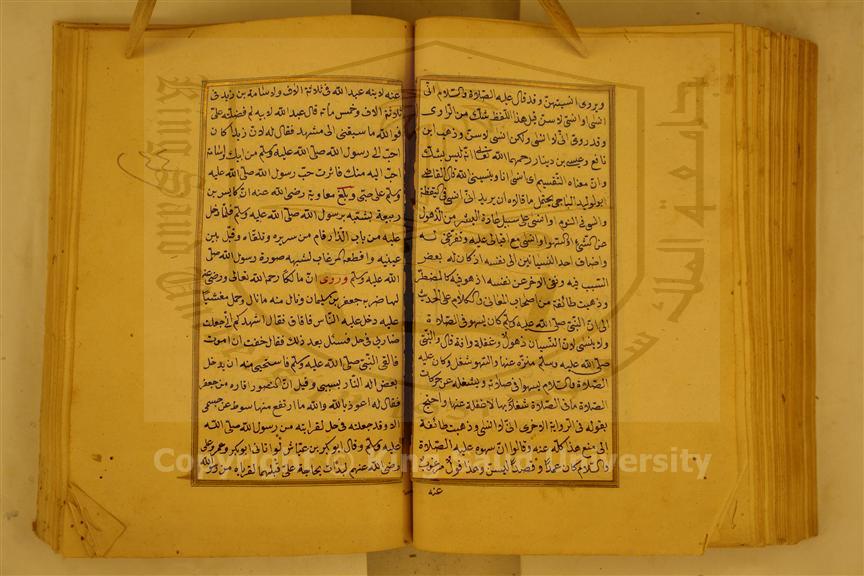 ويروى انسيتهن وقد قال عليه الصلاة والسلام انى
انسى او انسى لاسن قيل هذا اللفظ شك من الراوى
وقد روى انى لا انسى ولكن انسى لاسن وذهب ابن
نافع وعيسى بن دينار رحمهما الله تعالى انه ليس بشك
وان معناه التقسيم اى انسى انا او ينسينى الله قال القاضى
ابو الوليد الباجى يحتمل ما قالاه ان يريد انى انسى فى اليقظة
وانسى فى النوم او انسى على سبيل عادة البشر من الذهول
عن الشئ والسهو او انسى مع اقبالى عليه وتفرغى له
واضاف احد النسيانين الى نفسه اذ كان له بعض
السبب فيه ونفى الاخر عن نفسه اذ هو فيه كالمضطر
وذهبت طائفة من اصحاب المعانى والكلام على الحديث
الى ان النبى صلى الله عليه وسلم كان يسهو فى الصلاة
ولا ينسى لان النسيان ذهول وغفلة وافة قال والنبى
صلى الله عليه وسلم منزه عنها والسهو شغل وكان عليه
الصلاة والسلام يسهو فى صلاته ويشغله عن حركات
الصلاة ما فى الصلاة شغلا بها لا غفلة عنها واحتج
بقوله فى الرواية الاخرى انى لا انسى وذهبت طائفة
الى منع هذا كله عنه وقالوا ان سهوه عليه الصلاة
والسلام كان عمدا وقصدا ليسن وهذا قول مرغوب
عنه
عنه لابنه عبد الله فى ثلاثة الاف ولاسامة بن زيد فى
ثلاثة الاف وخمس مائة قال عبد الله لابيه لم فضلته على
فوالله ما سبقنى الى مشهد فقال له لان زيدا كان
احب الى رسول الله صلى الله عليه وسلم من ابيك واسامة
احب اليه منك فاثرت حب رسول الله صلى الله عليه
وسلم على حبى وبلغ معاوية رضى الله عنه ان كابس بن
ربيعة يشبه برسول الله صلى الله عليه وسلم فلما دخل
عليه من باب الدار قام من سريره وتلقاه وقبل بين
عينيه واقطعه المرغاب لشبهه صورة رسول الله صلى
الله عليه وسلم وروى ان مالكا رحمه الله تعالى ورضى عنه
لما ضربه جعفر بن سليمان ونال منه ما نال وحمل مغشيا
عليه دخل عليه الناس فافاق فقال اشهدكم انى جعلت
ضاربى فى حل فسئل بعد ذلك فقال خفت ان اموت
فالقى النبى صلى الله عليه وسلم فاستحيى منه ان يدخل
بعض اله النار بسببى وقيل ان المنصور اقاده من جعفر
فقال له اعوذ بالله والله ما ارتفع منها سوط عن جسمى
الا وقد جعلته فى حل لقرابته من رسول الله صلى الله
عليه وسلم وقال ابو بكر بن عياش لو اتانى ابو بكر وعمر وعلى
رضى الله عنهم لبدأت بحاجة على قبلهما لقرابته من رسول الله
Copyright © King Saud University
King Saud University
جامعة الملك سعود
1957